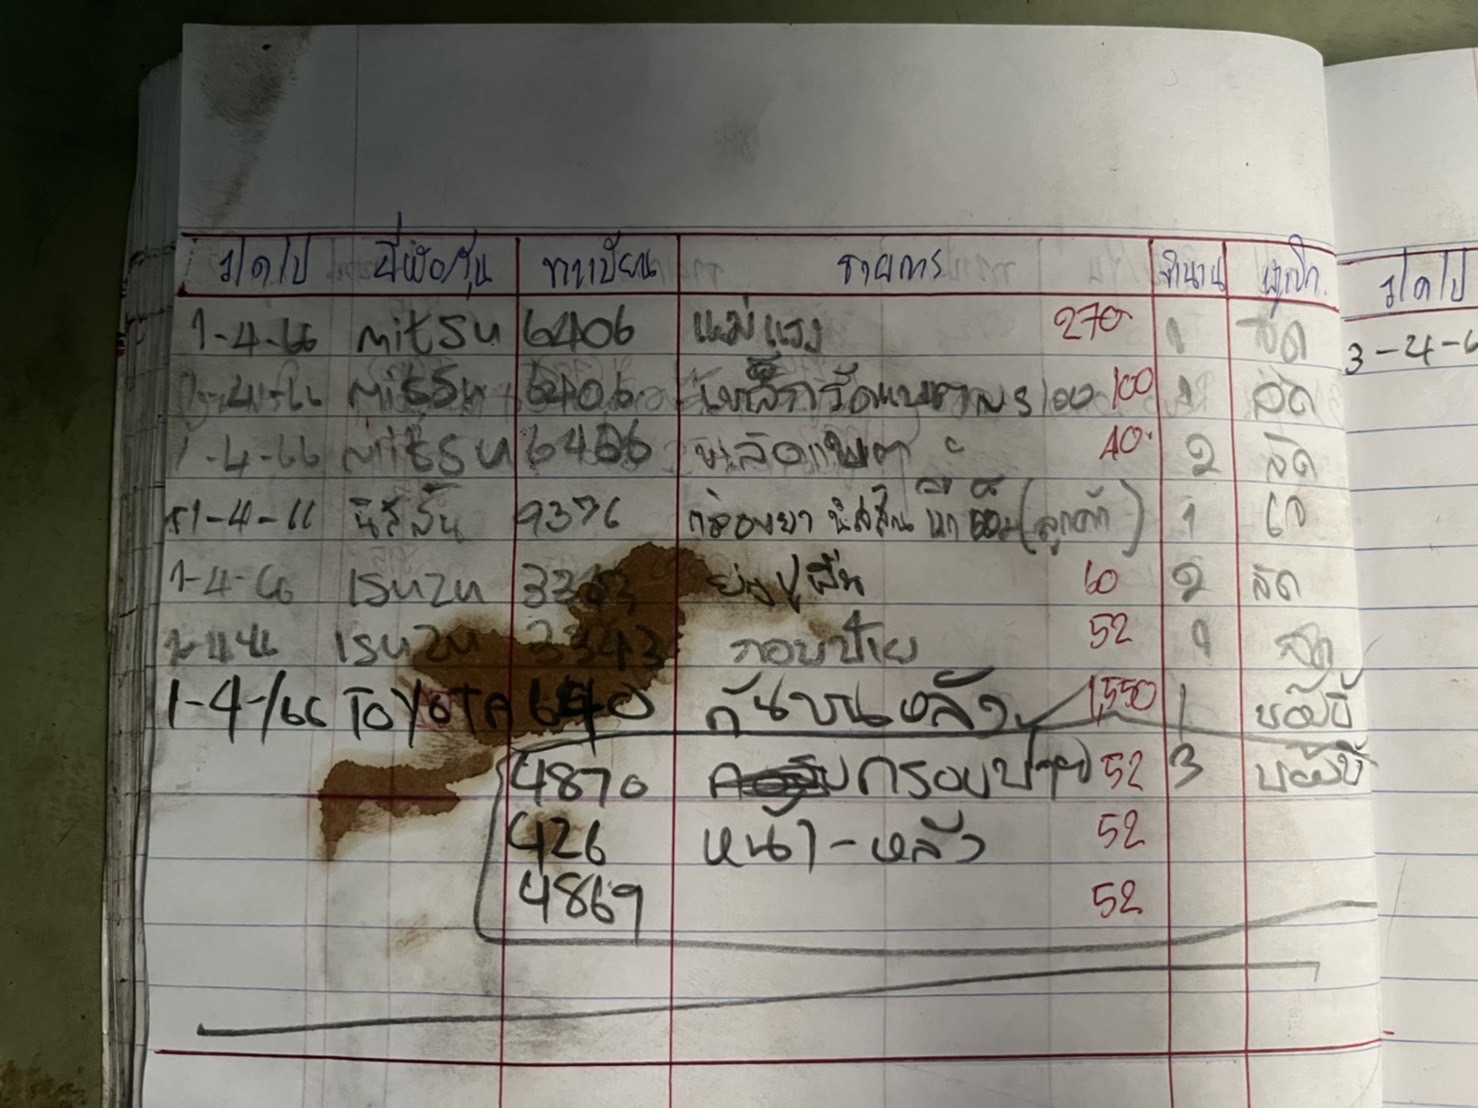 ว/ด/ป ยี่ห้อ/รุ่น ทะเบียน รายการ จำนวน ผู้เบิก.
1-4-66 mitsu 6406 แม่แรง 270 1 สัด
1-4-66 mitsu 6406 100 100 1 สัด
1-4-66 mitsu 6406 40 2 สัด
1-4-66 นิสสัน 9376 กล่องยา นิสสัน (ลูกค้า) 1
1-4-66 ISUZU 3343 60 2 สัด
1-4-66 ISUZU 3343 กอบป้าย 52 1 สัด
1-4-/66 TOYOTA 640 กันชนหลัง 1,550 1
4870 กรอบป้าย 52 3
426 หน้า-หลัง 52
4869 52
ว/ด/ป
3-4-6